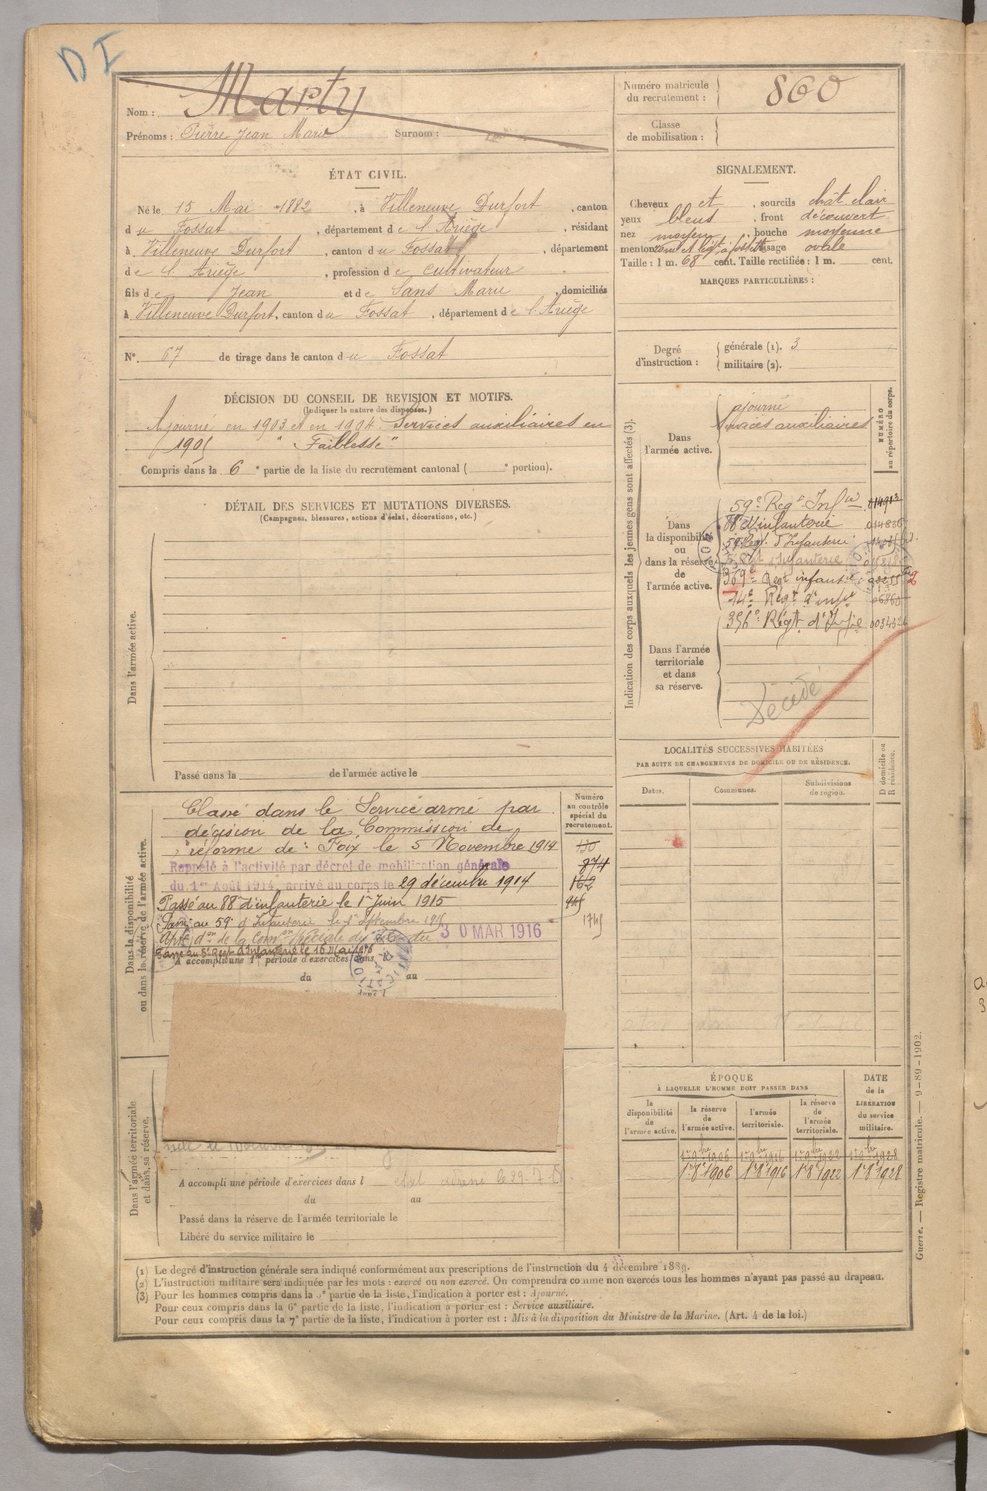 D I
Nom : Marty
Prénoms : Pierre Jean Marie Surnom :
Numéro matricule du recrutement : 860
Classe de mobilisation :
ÉTAT CIVIL.
Né le 15 Mai 1882, à Villeneuve Durfort, canton
du Fossat, département de l'Ariège, résidant
à Villeneuve Durfort, canton du Fossat, département
de l'Ariège, profession de cultivateur
fils de Jean et de Sans Marie, domiciliés
à Villeneuve Durfort, canton du Fossat, département de l'Ariège
N° 67 de tirage dans le canton du Fossat
SIGNALEMENT.
Cheveux et, sourcils chât clair
yeux bleus, front découvert
nez moyen, bouche moyenne
menton visage ovale
Taille : 1 m. 68 cent. Taille rectifiée : 1 m. cent.
MARQUES PARTICULIÈRES :
Degré d'instruction : générale (1). 3
militaire (2).
DÉCISION DU CONSEIL DE REVISION ET MOTIFS.
(Indiquer la nature des dispenses.)
Ajourné en 1903 et en 1904. Services auxiliaires en
1905 "Faiblesse"
Compris dans la 6e partie de la liste du recrutement cantonal ( e portion).
DÉTAIL DES SERVICES ET MUTATIONS DIVERSES.
(Campagnes, blessures, actions d'éclat, décorations, etc.)
Dans l'armée active.
Passé dans la de l'armée active le
Indication des corps auxquels les jeunes gens sont affectés (3).
NUMÉRO au répertoire du corps.
Dans l'armée active.
ajourné
Services auxiliaires
Dans la disponibilité ou dans la réserve de l'armée active.
59e Regt Infie
88e d'infanterie
59e Regt d'Infanterie
369e Regt infanie
14e Regt d'infie
396e Régt d'Infie
Dans l'armée territoriale et dans sa réserve.
Décédé
LOCALITÉS SUCCESSIVES HABITÉES
PAR SUITE DE CHANGEMENTS DE DOMICILE OU DE RÉSIDENCE.
Dates.
Communes.
Subdivisions de région.
D domicile ou R résidence.
Dans la disponibilité ou dans la réserve de l'armée active.
Numéro au contrôle spécial du recrutement.
Classé dans le Service armé par
décision de la Commission de
réforme de : Foix le 5 Novembre 1914
Rappelé à l'activité par décret de mobilisation générale
du 1er Août 1914, arrivé au corps le 29 décembre 1914
Passé au 88e d'infanterie le 1er Juin 1915
Passé au 59e d'Infanterie le 1er Septembre 1915
30 MAR 1916
A accompli une 1re période d'exercices dans
du au
874
162
Dans l'armée territoriale et dans sa réserve.
A accompli une période d'exercices dans l
du au
Passé dans la réserve de l'armée territoriale le
Libéré du service militaire le
ÉPOQUE
À LAQUELLE L'HOMME DOIT PASSER DANS
la disponibilité de l'armée active.
la réserve de l'armée active.
l'armée territoriale.
la réserve de l'armée territoriale.
DATE de la LIBÉRATION du service militaire.
1r 8bre 1906
1r 8bre 1916
1r 8bre 1922
1r 8bre 1928
(1) Le degré d'instruction générale sera indiqué conformément aux prescriptions de l'instruction du 4 décembre 1889.
(2) L'instruction militaire sera indiquée par les mots : exercé ou non exercé. On comprendra comme non exercés tous les hommes n'ayant pas passé au drapeau.
(3) Pour les hommes compris dans la 5e partie de la liste, l'indication à porter est : Ajourné.
Pour ceux compris dans la 6e partie de la liste, l'indication à porter est : Service auxiliaire.
Pour ceux compris dans la 7e partie de la liste, l'indication à porter est : Mis à la disposition du Ministre de la Marine. (Art. 4 de la loi.)
Guerre. — Registre matricule. — 9-89-1902.